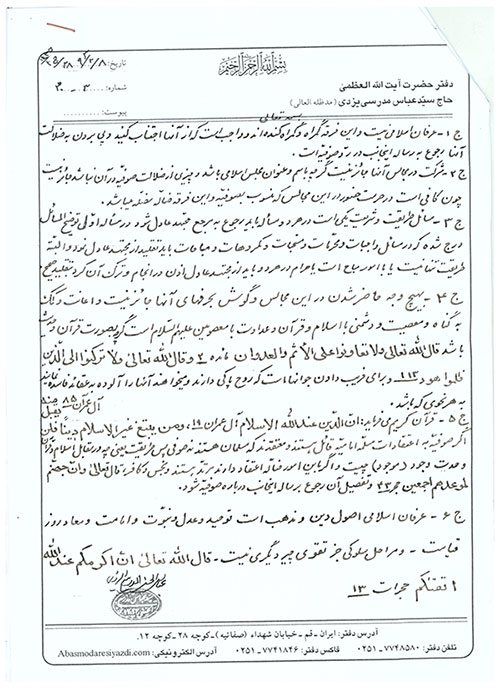 بسم الله الرحمن الرحیم
دفتر حضرت آیت الله العظمی
حاج سیّد عباس مدرسی یزدی (مدظله العالی)
تاریخ:
شماره:
پیوست:
بسمه تعالی
ج ۱- عرفان اسلامی نیست و این فرقه گمراه و گمراه کننده اند و واجب است که از آنها اجتناب کنید و پی بردن به ضلالت
آنها رجوع به رساله اینجانب در ردّ صوفیه است.
ج ۲- شرکت در مجالس آنها جائز نیست گرچه باسم و عنوان مجلس اسلامی باشد و چیزی از ضلالت صوفیه در آن نباشد جائز نیست
چون کافی است در حرمت حضور در این مجالس که منسوب بصوفیه و این فرقه ضاله
ج ۳- مسائل طریقت و شریعت یکی است در هر دو مساله باید رجوع به مرجع مجتهد عادل شود و در مساله اولی توضیح المسائل
درج شده که در مسائل واجبات و محرمات و مستحبات و مکروهات و مباحات باید تقلید از مجتهد عادل نمود و البته
طریقت تنها نیست یا با امور مباح است یا حرام در هر دو باید از مجتهد عادل اذن در انجام و ترک آن کرد تقلید صحیح
ج ۴- بهیچ وجه حاضر شدن در این مجالس و گوش بحرفهای آنها جائز نیست و اعانت و کمک
به گناه و معصیت و دشمنی با اسلام و قرآن و عداوت با معصومین علیهم السلام است گرچه بصورت قرآن و
باشد قال الله تعالی ولا تعاونوا علی الاثم والعدوان مائده ۲ و قال الله تعالی ولا ترکنوا الی الذین
ظلموا هود ۱۱۳ و برای فریب دادن جوانها است که روح پاکی دارند و میخواهند آنها را آلوده به عقائد فاسده نمایند
به هر نحوی که باشد.
آل عمران ۸۵
ج ۵- قرآن کریم می فرماید: ان الدین عند الله الاسلام آل عمران ۱۹ و من یبتغ غیر الاسلام دیناً فلن یقبل
اگر صوفیه به اعتقادات مسلمه امامیه قائل هستند و معتقدند که مسلمان هستند
وحدت وجود (موجود) چیست و اگر باین امور فاسد اعتقاد دارند مرتد هستند و نجس و کافر قال تعالی وان جهنم
لموعدهم اجمعین حجر ۴۳ و تفصیل آن رجوع برساله اینجانب درباره صوفیه شود.
ج ۶- عرفان اسلامی اصول دین و مذهب است توحید و عدل و نبوّت و امامت و معاد روز
قیامت - و مراحل سلوکی جز تقوی چیز دیگری نیست - قال الله تعالی ان اکرمکم عند الله
اتقیکم حجرات ۱۳
آدرس دفتر: ایران - قم - خیابان شهداء (صفائیه) - کوچه ۲۸ - کوچه ۱۲.
تلفن دفتر: ۷۷۴۸۵۸۰-۰۲۵۱ فاکس دفتر: ۷۷۴۱۸۴۶-۰۲۵۱ آدرس الکترونیکی: Abasmodaresiyazdi.com